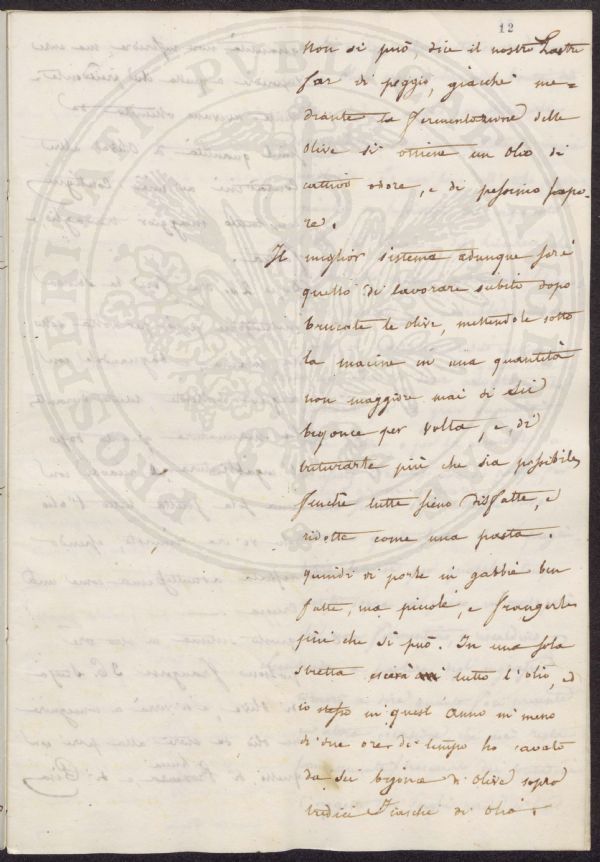 12
Non si può, dice il nostro Lastri
far di peggio, giacchè me-
diante la fermentazione delle
olive si ottiene un olio di
cattivo odore, e di pessimo sapo-
re.
Il miglior sistema adunque sarà
quello di lavorare subito dopo
brucate le olive, mettendole sotto
la macine in una quantità
non maggiore mai di sei
bigonce per volta, e di
triturarle più che sia possibile
finchè tutte sieno disfatte, e
ridotte come una pasta.
Quindi si porte in gabbie ben
fatte, ma piccole, e frangerle
più che si può. In una sola
stretta escirà tutto l'olio, e
io stesso in quest'anno in meno
di due ore di tempo ho cavato
da sei bigonce di olive sopra
tredici fiaschi di olio.
PROSPERI PUBLICAE AUGUR